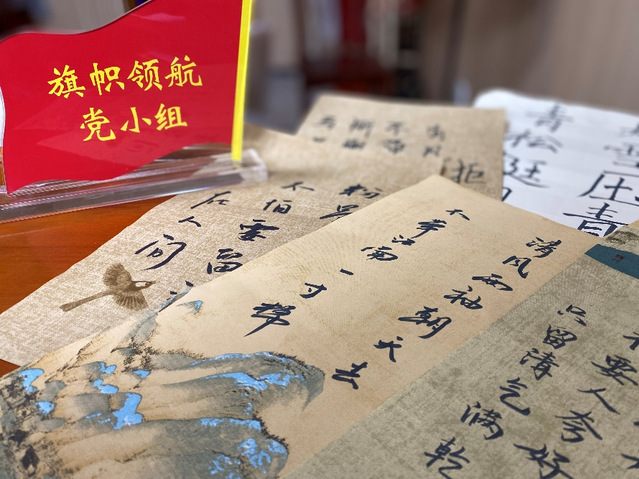 旗帜领航
党小组
雪压青
青松挺
清风两袖朝天去
不带江南一寸棉
粉骨
不怕
要留
在人间
不要人夸好
只留清气满乾